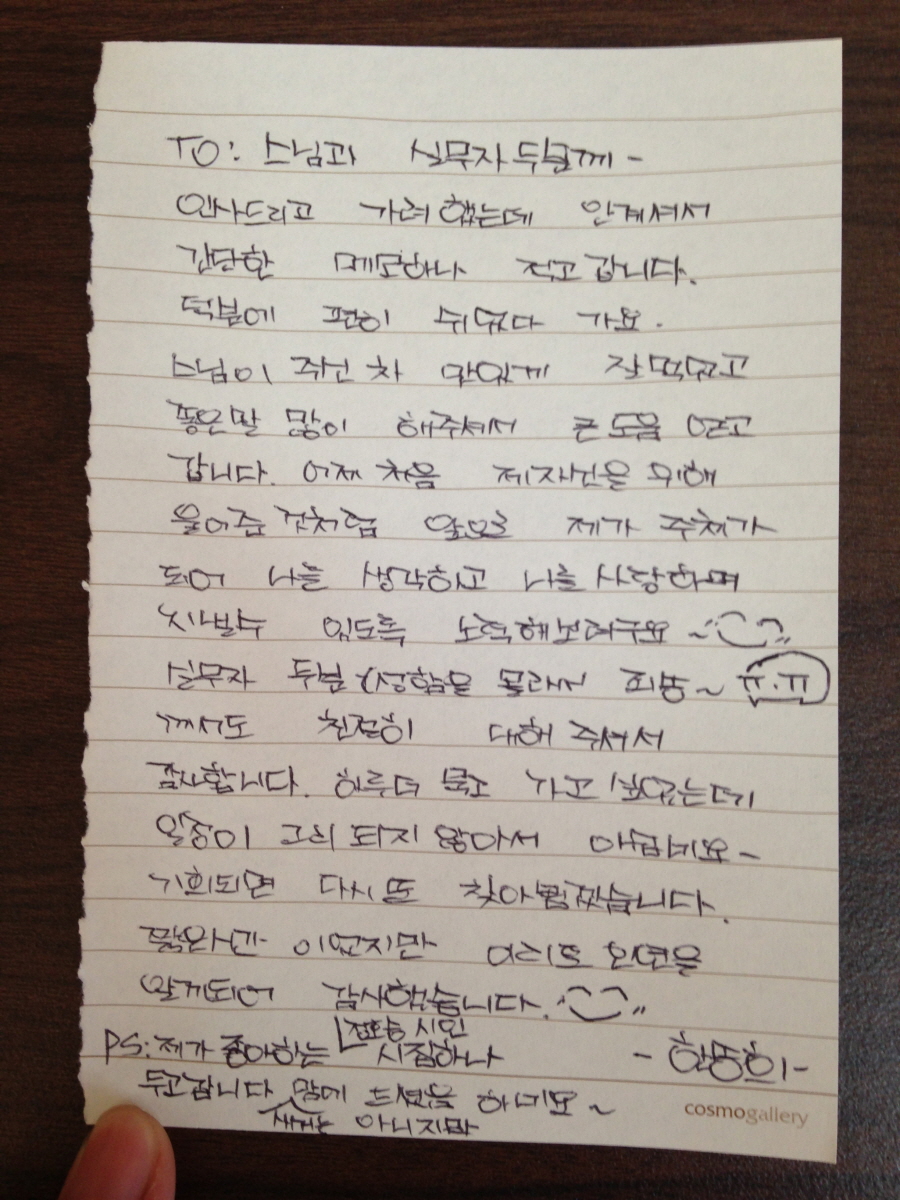 TO: 스님과 실무자 두분께 -
인사드리고 가려 했는데 안계셔서
간단한 메모하나 적고 갑니다.
덕분에 편히 쉬었다 가요.
스님이 주신 차 맛있게 잘 먹었고
좋은말 많이 해주셔서 큰 도움 얻고
갑니다. 어제 처음 제자신을 위해
울어준 것처럼 앞으로 제가 주체가
되어 나를 생각하고 나를 사랑하며
지낼수 있도록 노력해보려구요 ~
실무자 두분 (성함을 몰라서 죄송~ ㅠ.ㅠ)
께서도 친절히 대해 주셔서
감사합니다. 하루더 묵고 가고 싶었는데
일정이 고려 되지 않아서 아쉽네요 ~
기회되면 다시 또 찾아뵙겠습니다.
짧은시간 이었지만 여러모로 인연을
맺게되어 감사했습니다.
PS: 제가 좋아하는 정호승 시인 시집하나
두고갑니다 새거는 아니지만 맘에 드셨음 하네요 ~
- 한동희 -
cosmogallery